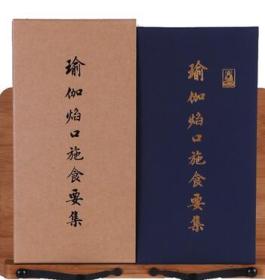 瑜伽焰口施食要集
瑜伽焰口施食要集